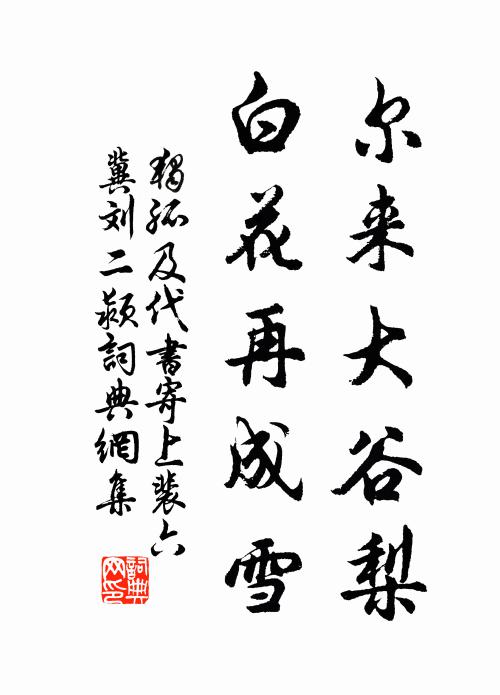 尔来大谷梨
白花再成雪
独孤及代书寄上裴六
冀刘二颍词典網集
詞典
网印